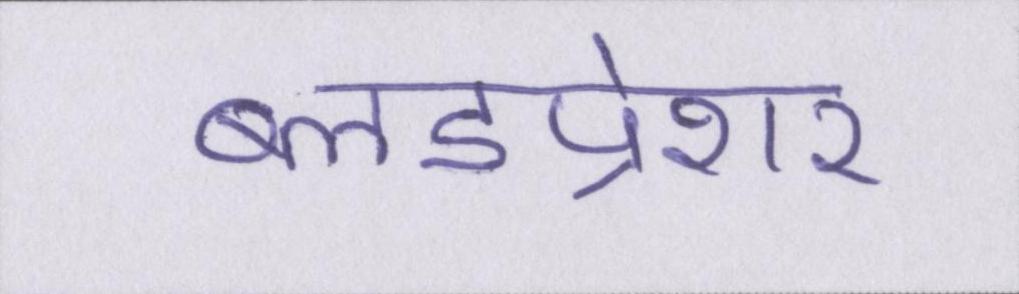 ब्लडप्रेशर